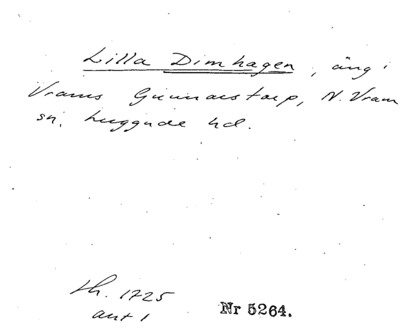 Lilla Dimhagen, äng i
Vrams Gunnarstorp, N. Vram
sn, Luggude hd.
th. 1725
akt 1
Nr 5264.